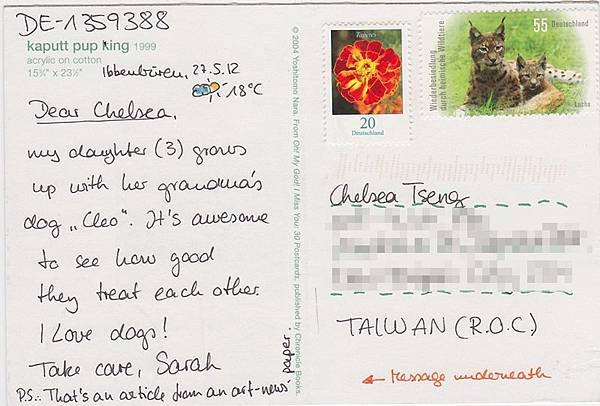 DE-1359388
kaputt pup king 1999
acrylic on cotton
15¾" x 23½"
Ibbenbüren, 27.5.12
18°C
Dear Chelsea,
my daughter (3) grows
up with her grandma's
dog „Cleo". It's awesome
to see how good
they treat each other.
I Love dogs!
Take care, Sarah
P.S.: That's an article from an art-news
paper.
© 2004 Yoshitomo Nara. From Oh! My God! I Miss You: 30 Postcards, published by Chronicle Books.
Tagetes
20
Deutschland
55 Deutschland
Wiederbesiedlung
durch heimische Wildtiere
Luchs
Chelsea Tseng
TAIWAN (R.O.C)
← Message underneath